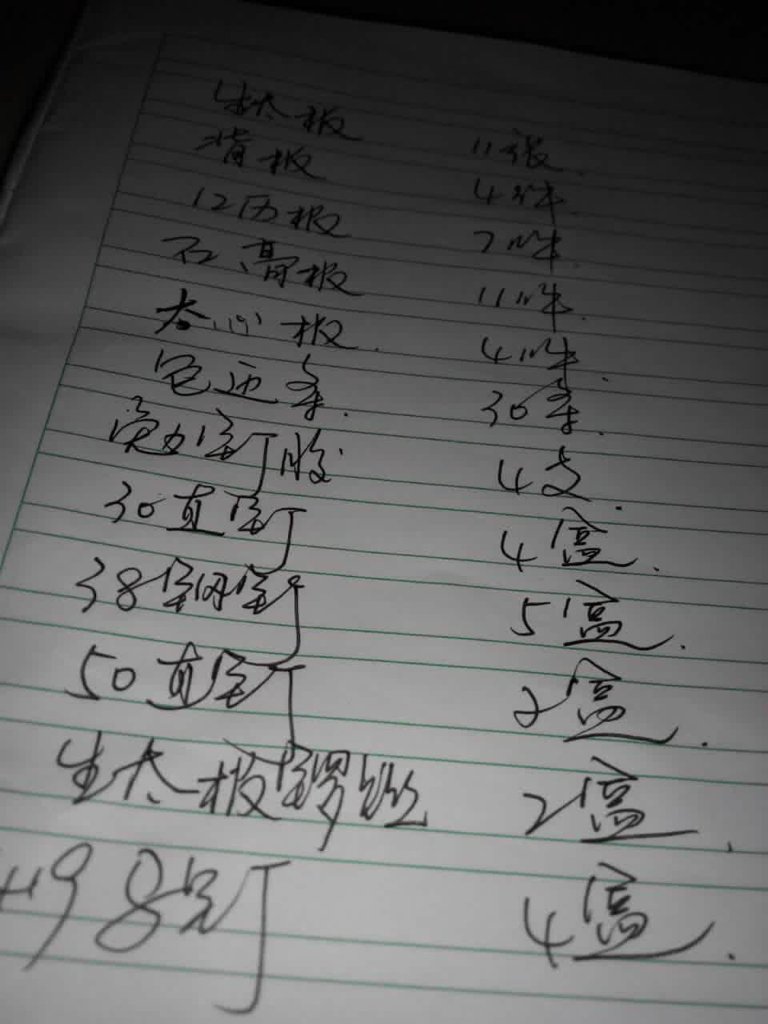 生太板 11张.
背板 4张.
12历板 7张.
石膏板 11张.
太心板. 4张.
包边条. 30条.
亮力钉胶 4支.
30直钉 4盒.
38钢钉 5盒.
50直钉 2盒.
生太板锣丝 2盒.
498钉 4盒.